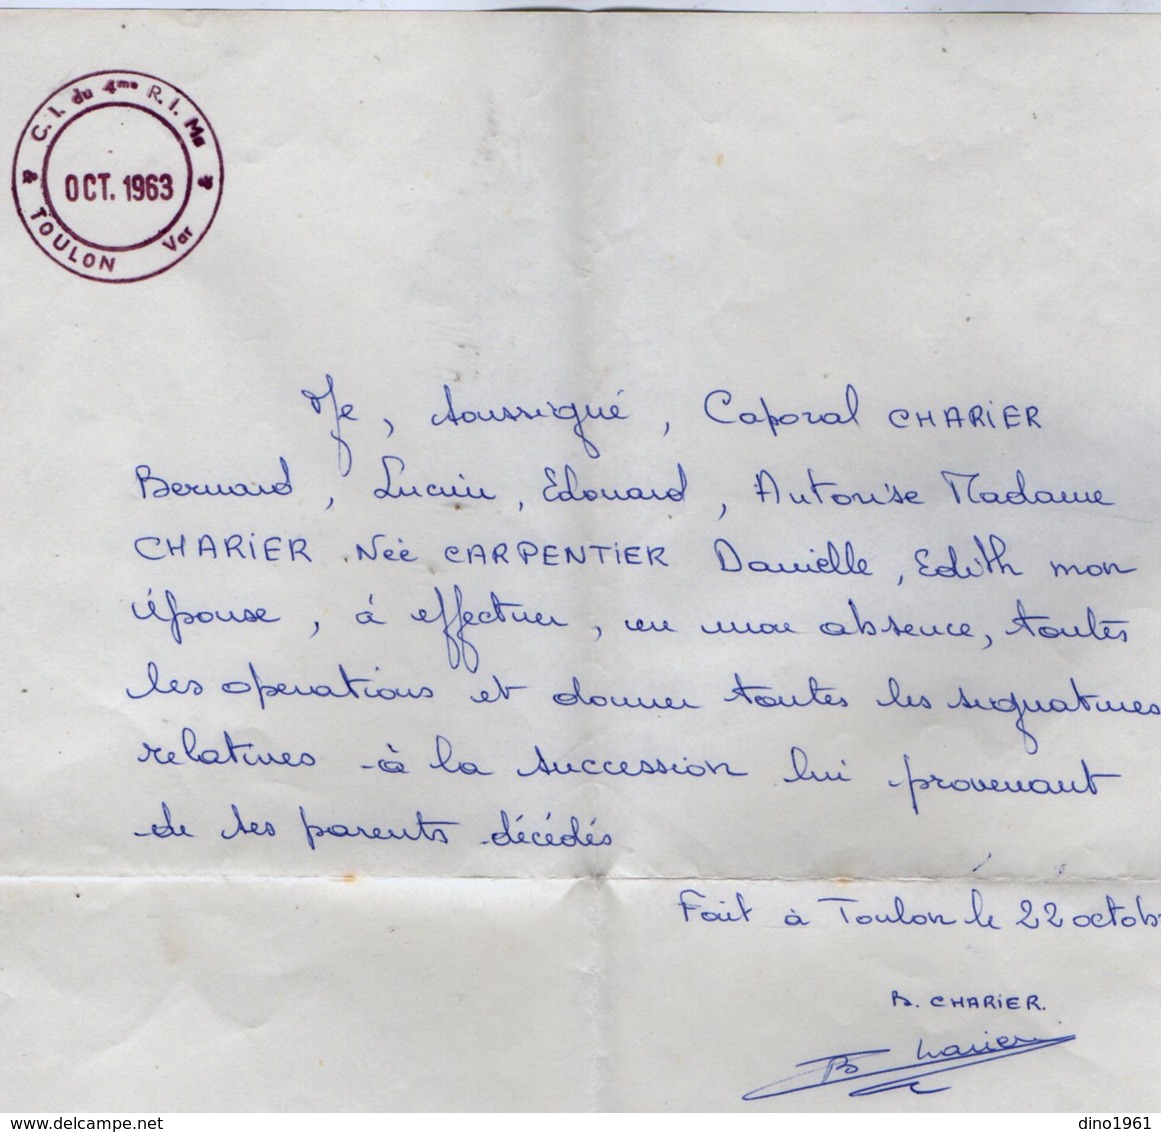 C. I. du 4me R. I. Ma
OCT. 1963
TOULON Var
Je, soussigné, Caporal CHARIER
Bernard, Lucien, Edouard, Autorise Madame
CHARIER Née CARPENTIER Danielle, Edith mon
épouse, à effectuer, en mon absence, toutes
les opérations et donner toutes les signatures
relatives à la succession lui provenant
de ses parents décédés
Fait à Toulon le 22 octob
B. CHARIER.
B Charier
dino1961